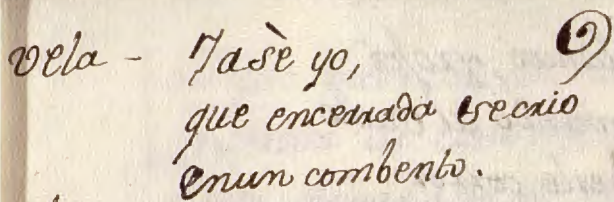 vela - Ya sè yo,
que encerrada se crio
en un combento.